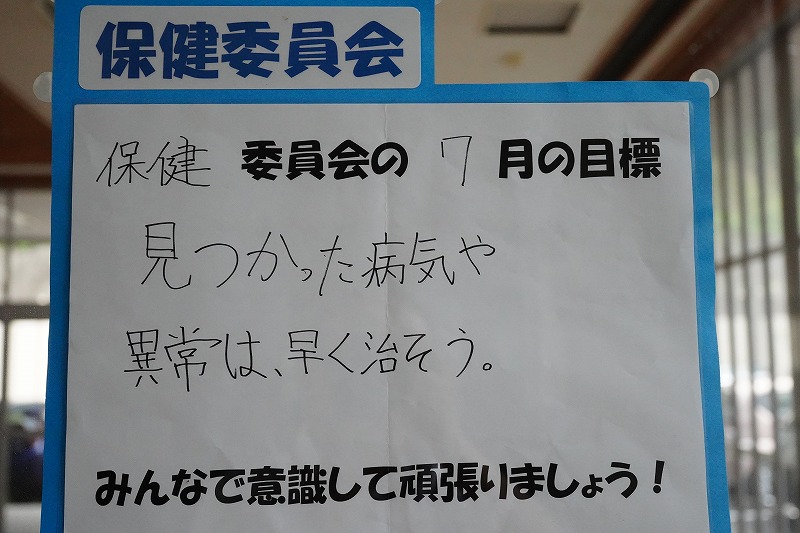 保健委員会
保健 委員会の 7 月の目標
見つかった病気や
異常は、早く治そう。
みんなで意識して頑張りましょう！